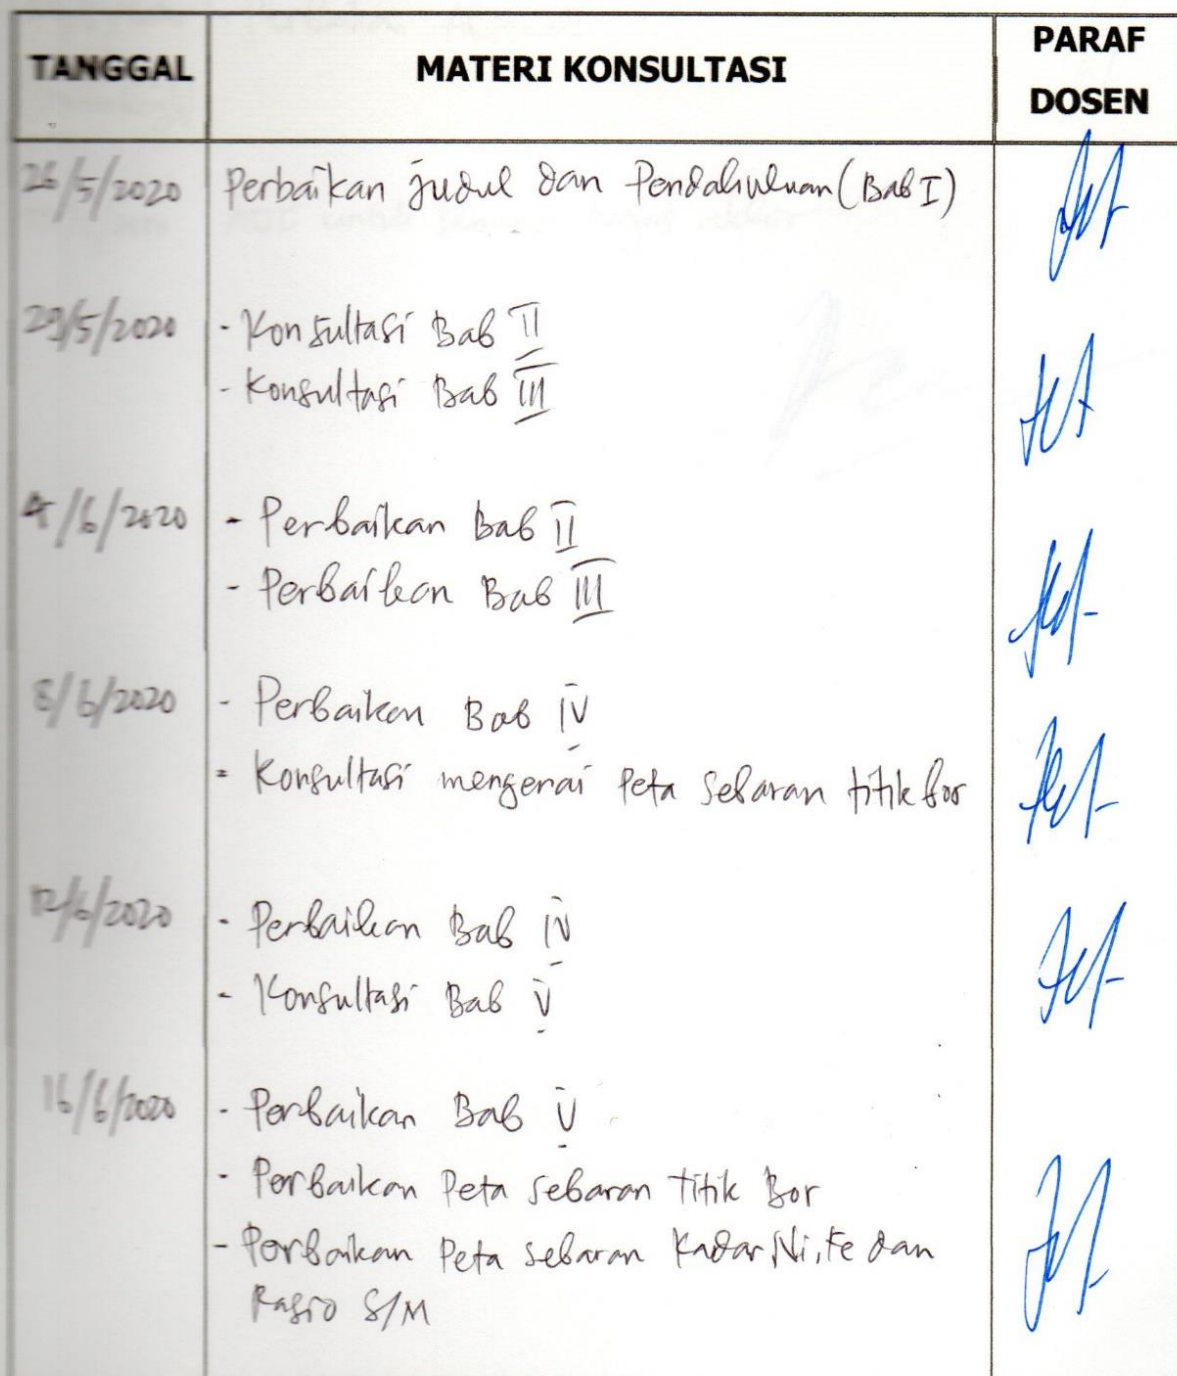 TANGGAL MATERI KONSULTASI PARAF
DOSEN
26/5/2020 Perbaikan judul dan Pendahuluan (Bab I)
29/5/2020 - Konsultasi Bab II
- Konsultasi Bab III
4/6/2020 - Perbaikan Bab II
- Perbaikan Bab III
8/6/2020 - Perbaikan Bab IV
- Konsultasi mengenai Peta Sebaran titik bor
12/6/2020 - Perbaikan Bab IV
- Konsultasi Bab V
16/6/2020 - Perbaikan Bab V
- Perbaikan Peta sebaran Titik Bor
- Perbaikan Peta sebaran Kadar Ni, Fe dan
Rasio S/M